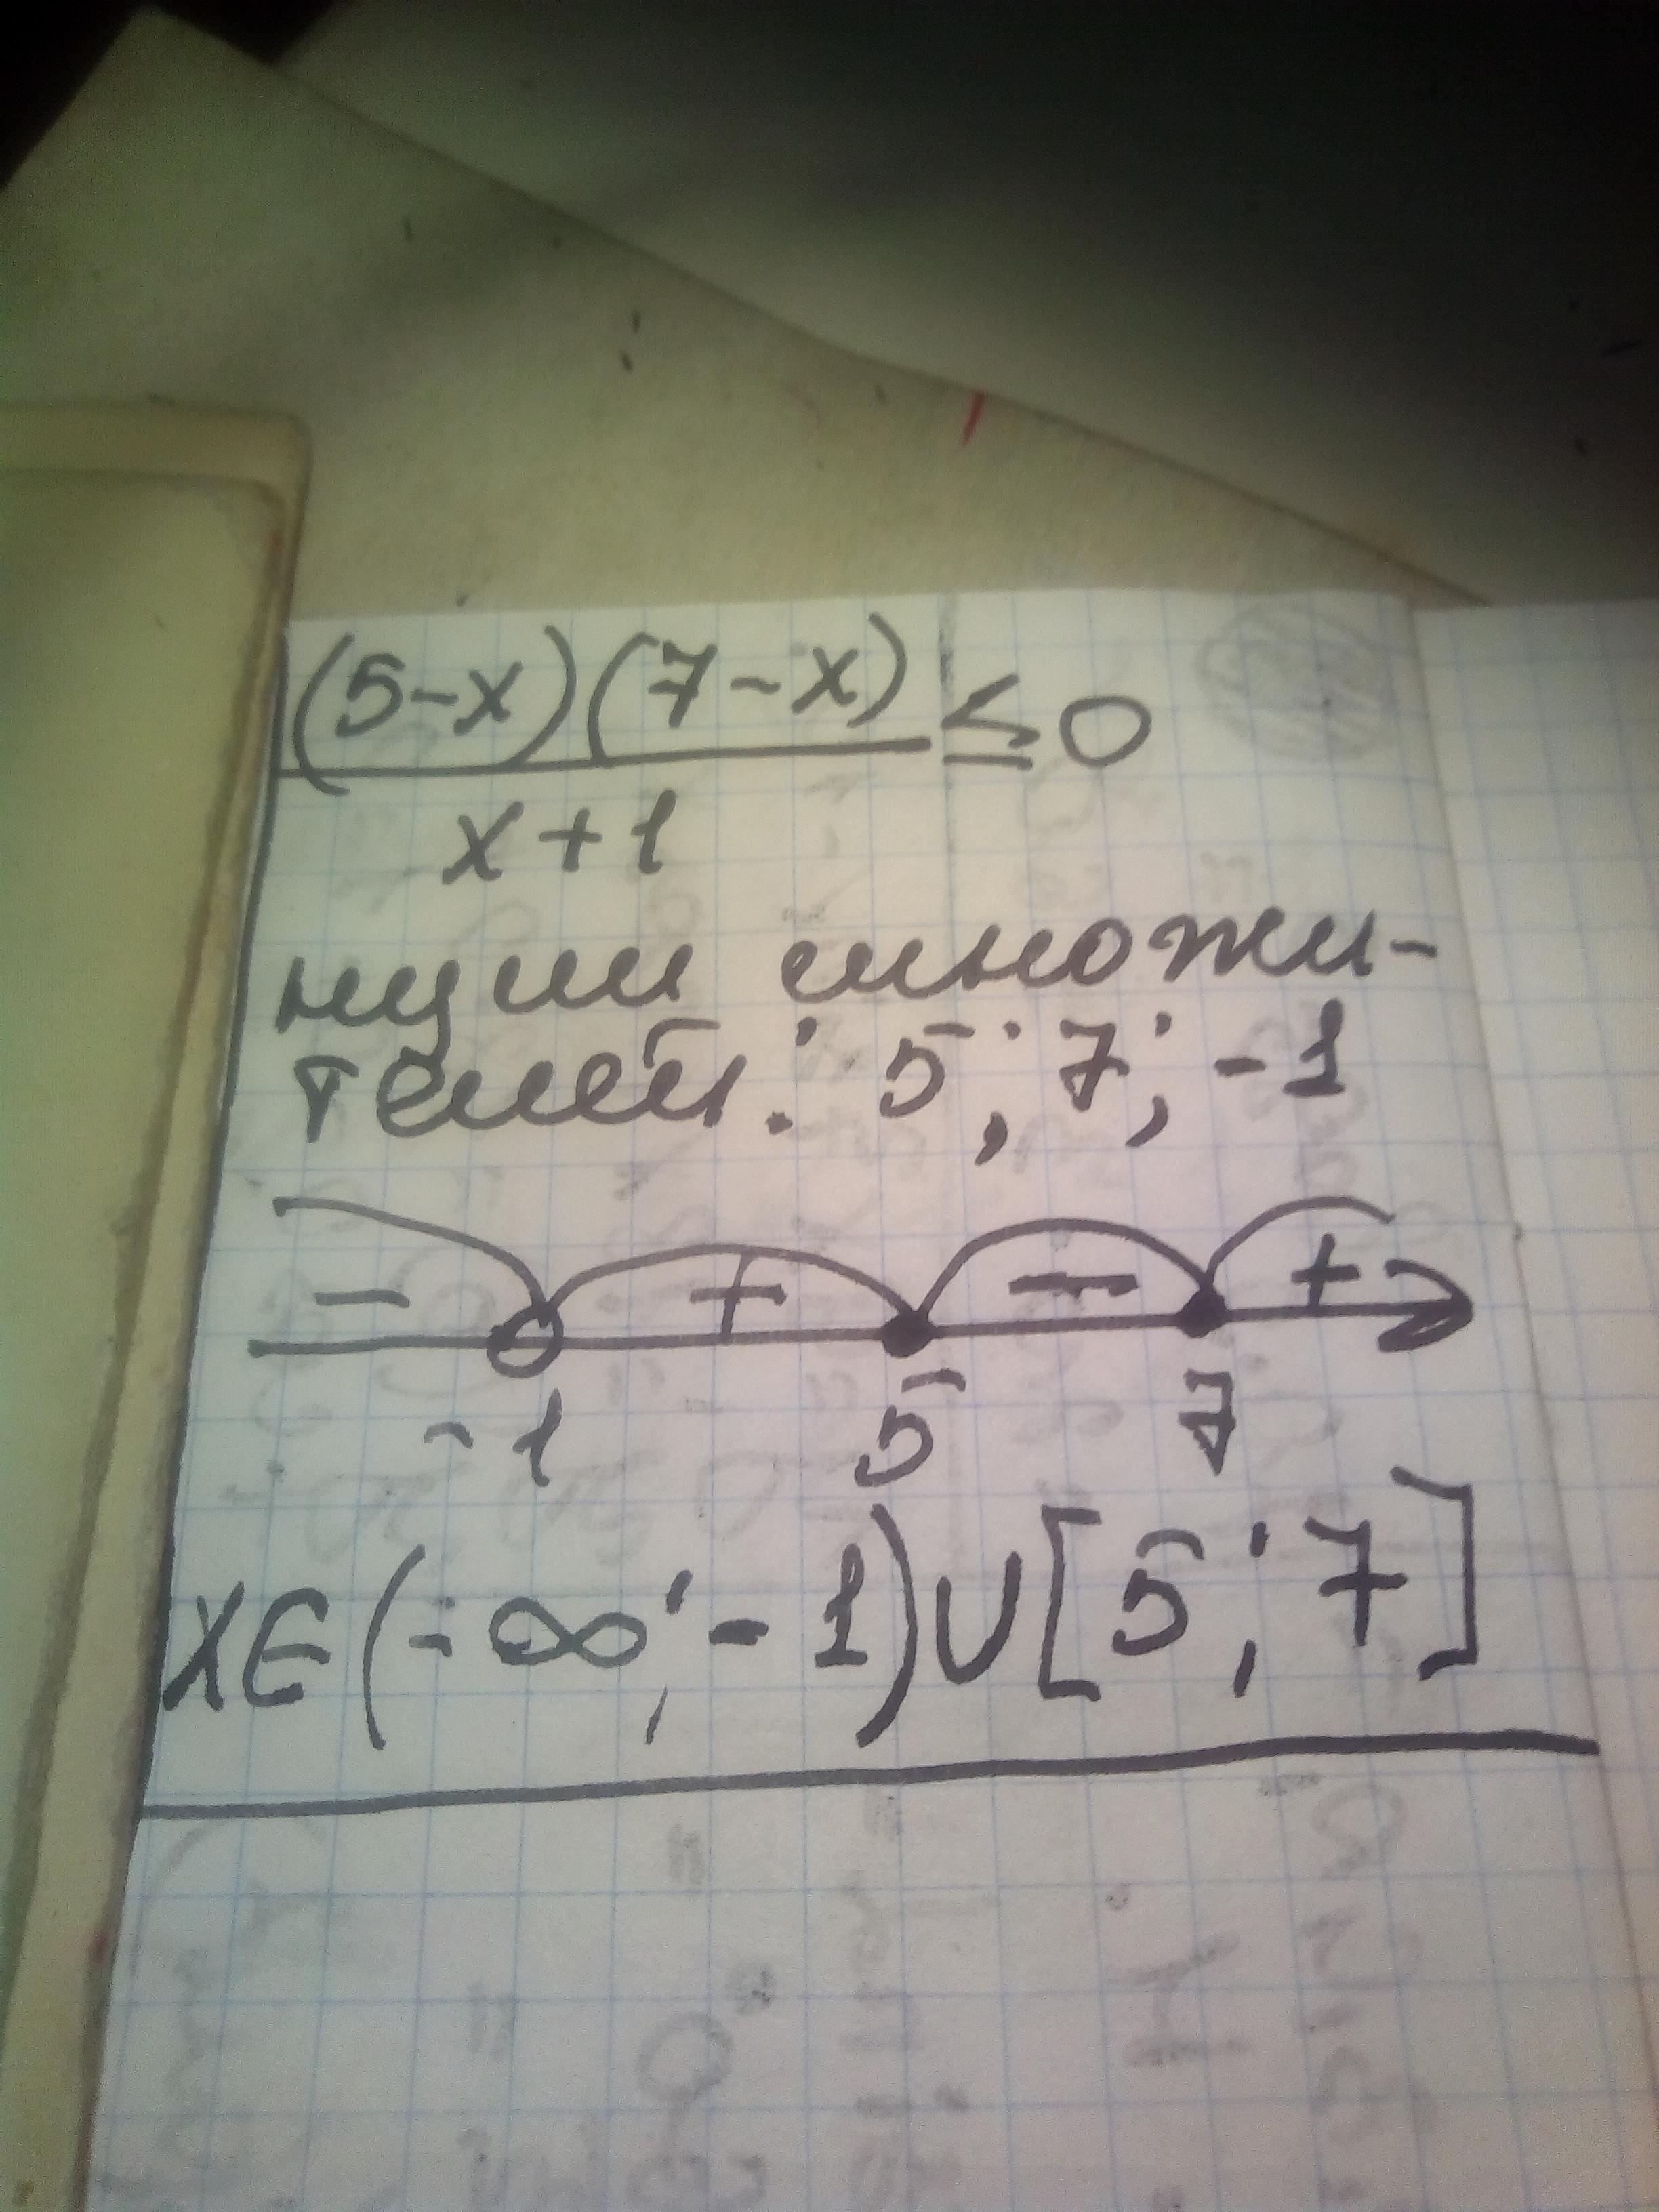 (5-x)(7-x) ≤ 0
x+1
нули множи-
телей: 5; 7; -1
- + - +
-1 5 7
x∈(-∞;-1)∪[5;7]